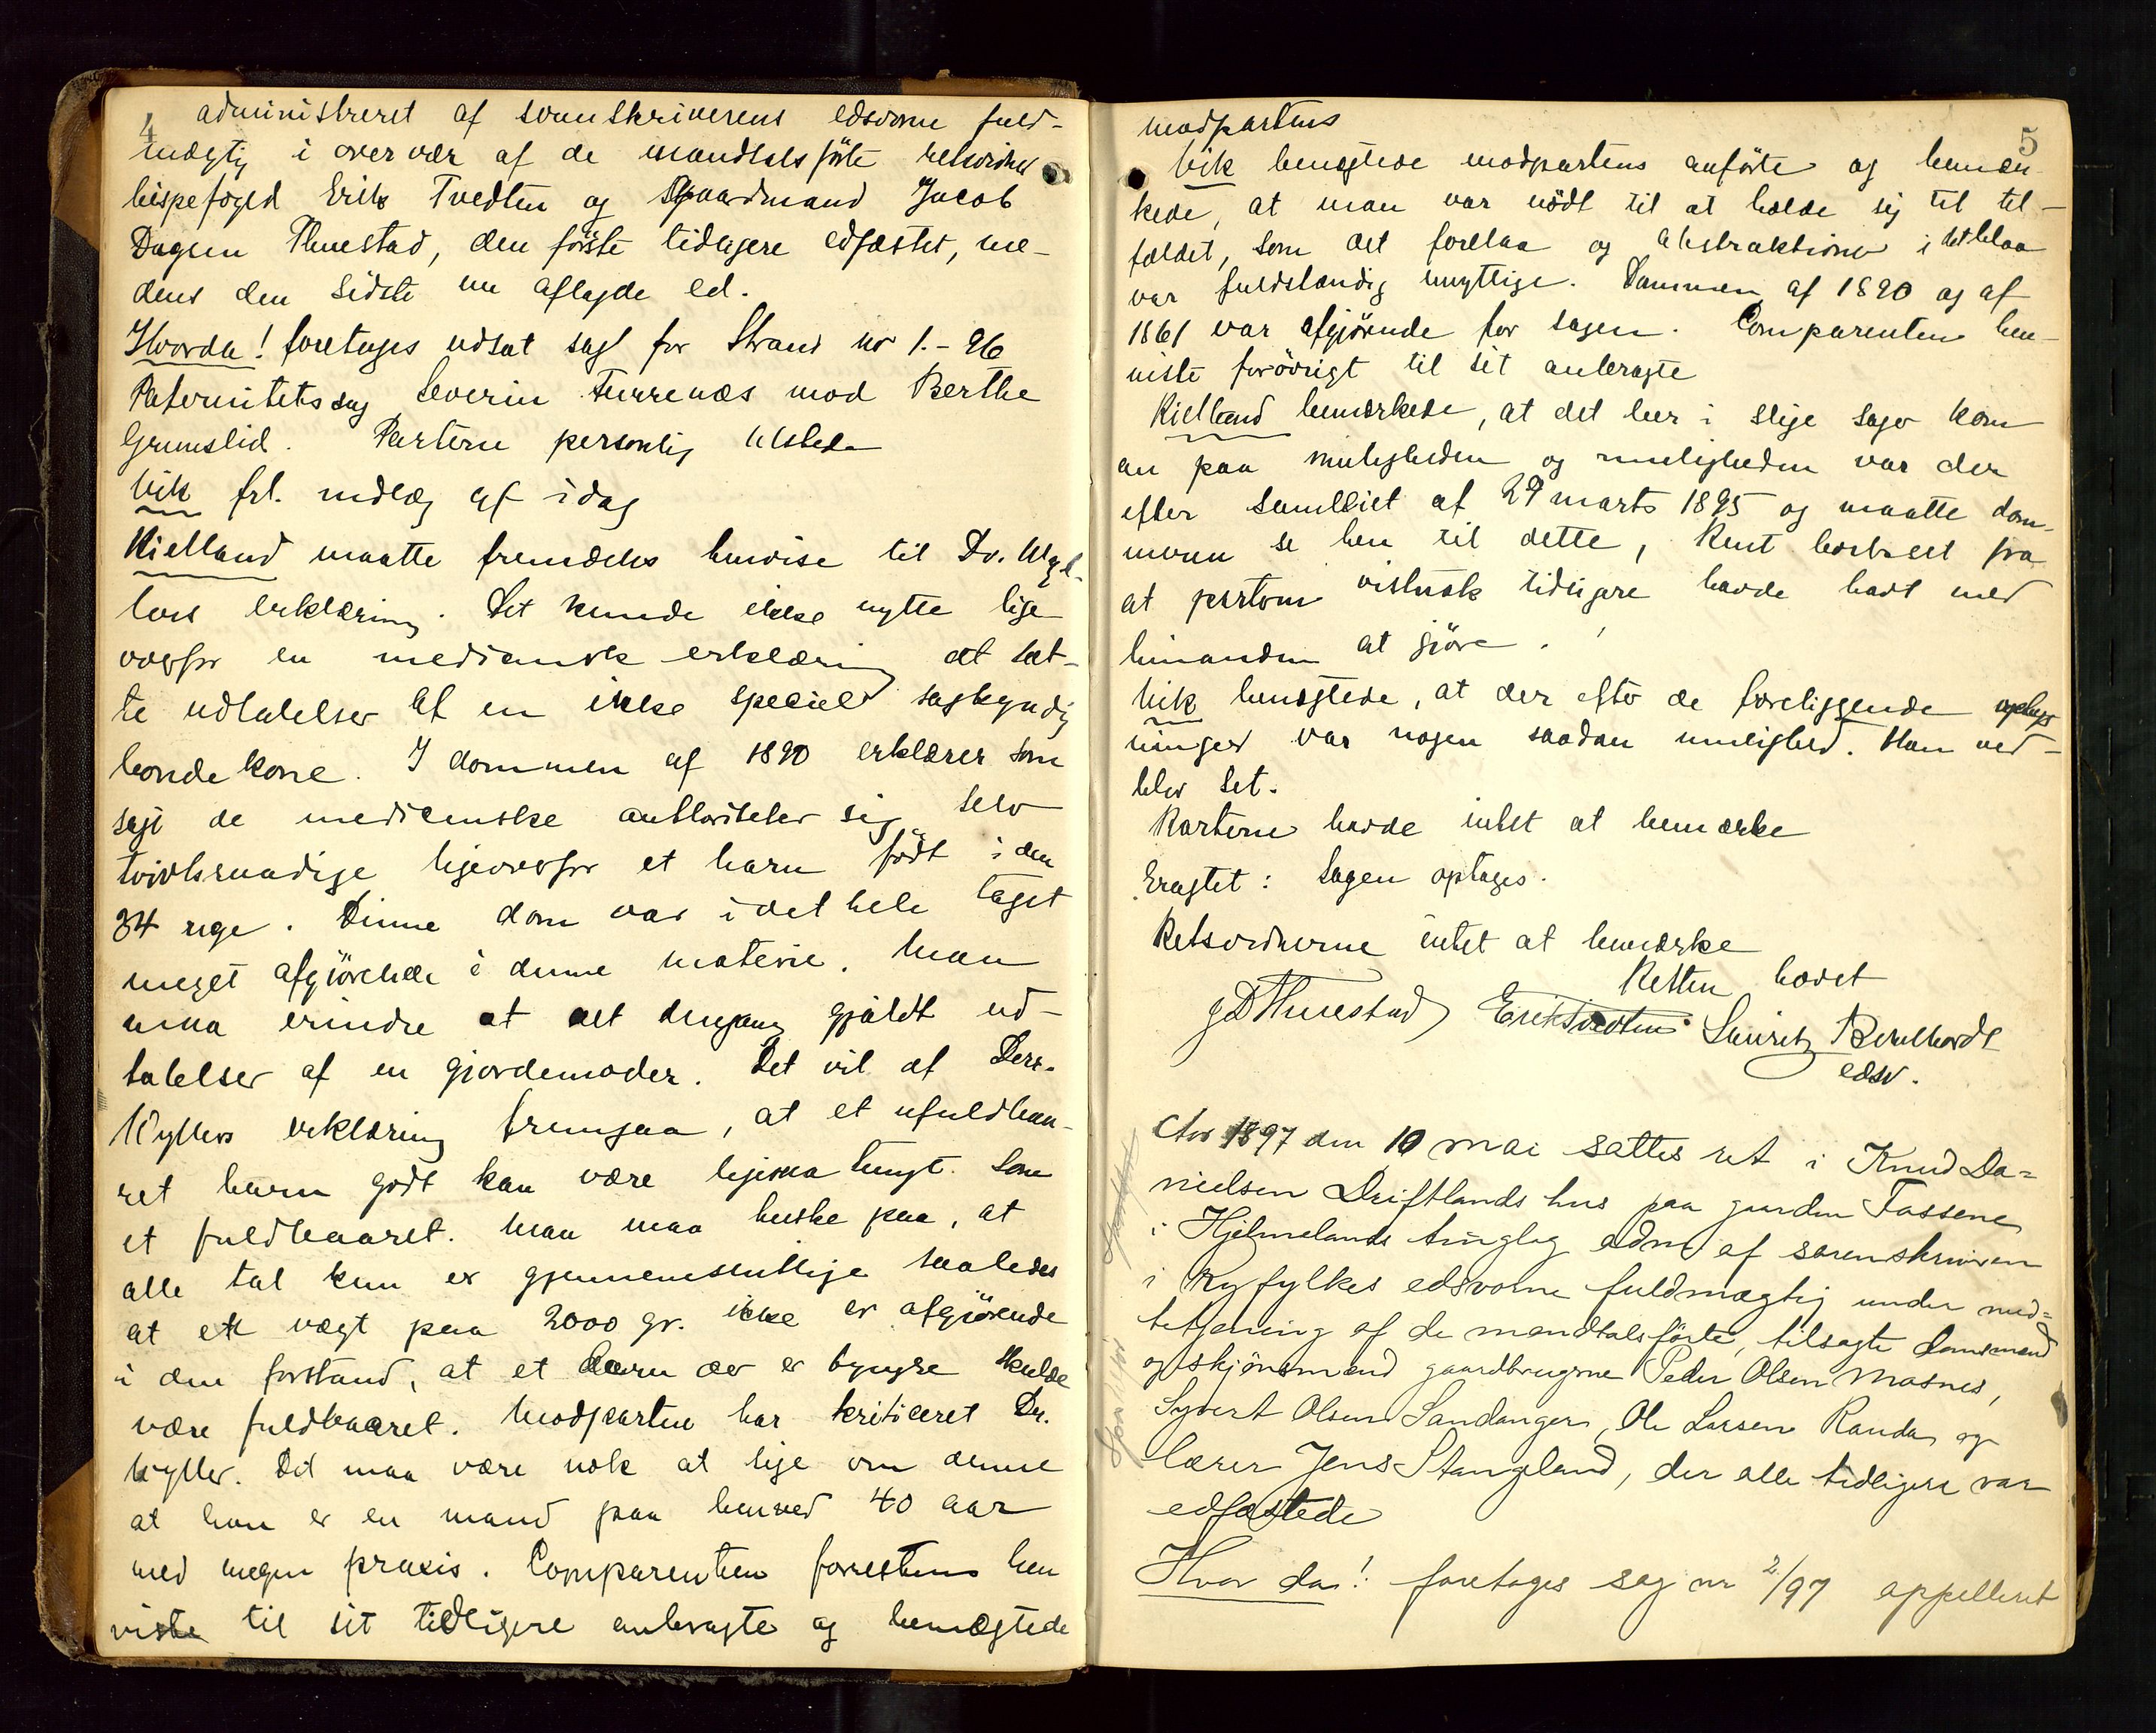 4
administreret af sorenskriverens edsvorne fuld-
mægtig i overvær af de mandtalsførte retsvidner
bispefoged Erik Tvedten og gaardmand Jacob
Dagsen Thuestad, den første tidligere edfæstet, me-
dens den sidste nu aflagde ed.
Hvorda! foretages udsat sag for Strand nr 1.-96
Paternitetssag Severin Furrenæs mod Berthe
Grumslid. Parterne personlig tilstede
Vik frl. indlæg af idag
Kielland maatte fremdeles henvise til Dr. Wyl-
lers erklæring. Det kunde ikke nytte lige
overfor en medicinsk erklæring at sæt-
te udtalelser af en ikke speciel sagkyndig
bondekone. I dommen af 1890 erklærer som
sagt de medicinske autoriteter sig selv
tvivlraadige ligeoverfor et barn født i den
34 uge. Denne dom var i det hele taget
meget afgjørende i denne materie. Man
maa erindre at det dengang gjaldt ud-
talelser af en gjordemoder. Det vil af Ders.
Wyllers erklæring fremgaa, at et ufuldbaa-
ret barn godt kan være ligesaa tungt som
et fuldbaaret. Man maa huske paa, at
alle tal kun er gjennemsnitlige saaledes
at et vægt paa 2000 gr. ikke er afgjørende
i den forstand, at et barn der er tyngre skulde
være fuldbaaret. Modparten har kritiseret Dr.
Wyller. Det maa være nok at sige om denne
at han er en mand paa henved 40 aar
med megen praxis. Comparenten forresten hen
viste til sit tidligere anbragte og benægtede
5
modpartens
Vik benegtede modpartens anførte og bemær-
kede, at man var nødt til at holde sig til til-
fældet, som det forelaa og abstraktioner i det blaa
var fuldstændig unyttige. Dommen af 1890 og af
1861 var afgjørende for sagen. Comparenten hen-
viste forøvrigt til sit anbragte
Kielland bemærkede, at det her i slige sager kom
an paa muligheden og muligheden var der
efter samleiet af 29 marts 1895 og maatte dom-
meren se hen til dette, rent bortseet fra
at parterne vistnok tidligere havde havt med
hinanden at gjøre.
Vik benegtede, at der efter de foreliggende oplys
ninger var nogen saadan mulighed. Han ved-
blev sit.
Parterne havde intet at bemærke
Eragtet: Sagen optages.
Retsvidnerne intet at bemærke
Retten hævet
J D Thuestad Erik Tvedten Lauritz Bernhardt
edsv.
Aar 1897 den 10 mai sattes ret i Knud Da=
nielsen Driftlands hus paa gaarden Fossene
i Hjelmelands tinglag adm. af sorenskriveren
i Ryfylkes edsvorne fuldmægtig under med=
betjening af de mandtalsførte, tilsagte domsmænd
og skjønsmænd gaardbrugerne Peder Olsen Mosnes,
Syvert Olsen Sandanger, Ole Larsen Randa og
lærer Jens Stangland, der alle tidligere var
edfæstede
Hvor da! foretages sag nr 2/97 appelleret